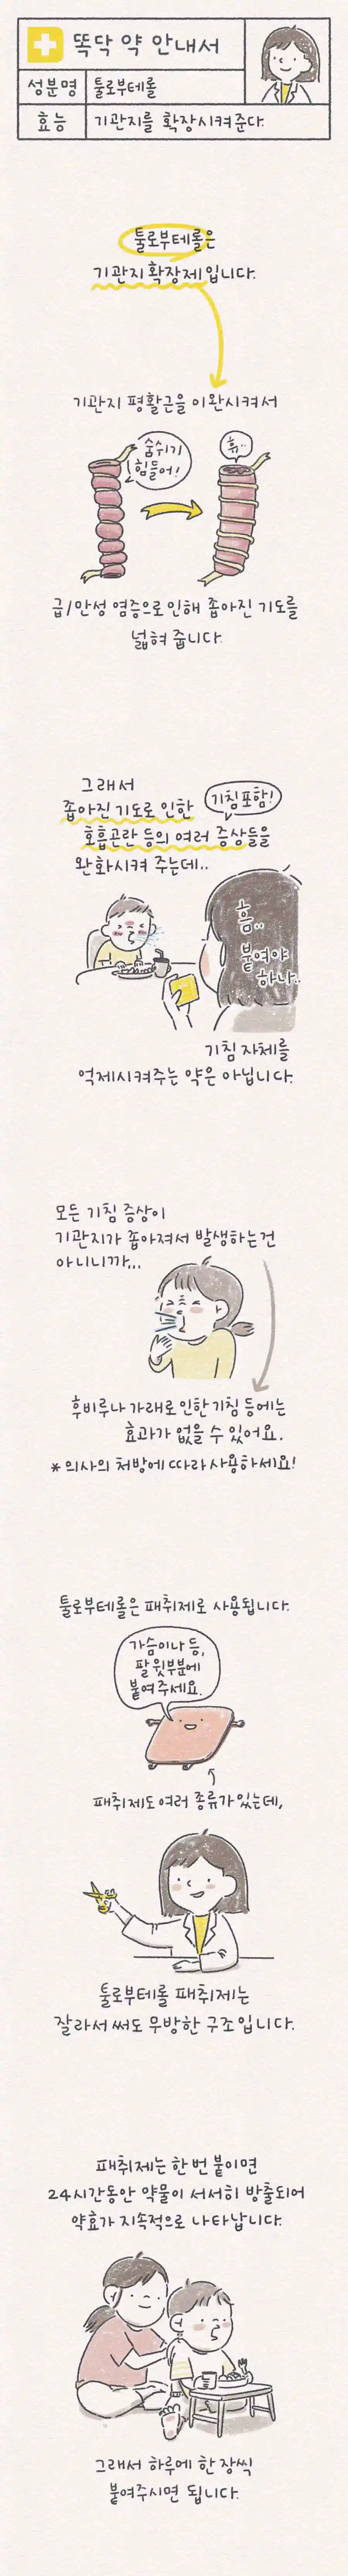 똑닥 약 안내서
성분명 툴로부테롤
효능 기관지를 확장시켜준다.
툴로부테롤은
기관지 확장제입니다.
기관지 평활근을 이완시켜서
숨쉬기
힘들어!
휴..
급/만성 염증으로 인해 좁아진 기도를
넓혀 줍니다.
그래서
좁아진 기도로 인한
기침포함!
호흡곤란 등의 여러 증상들을
완화시켜 주는데..
흠..
붙여야
하나..
기침 자체를
억제시켜주는 약은 아닙니다.
모든 기침 증상이
기관지가 좁아져서 발생하는건
아니니까...
후비루나 가래로 인한 기침 등에는
효과가 없을 수 있어요.
*의사의 처방에 따라 사용하세요!
툴로부테롤은 패취제로 사용됩니다.
가슴이나 등,
팔 윗부분에
붙여주세요.
패취제도 여러 종류가 있는데,
툴로부테롤 패취제는
잘라서 써도 무방한 구조입니다.
패취제는 한 번 붙이면
24시간동안 약물이 서서히 방출되어
약효가 지속적으로 나타납니다.
그래서 하루에 한 장씩
붙여주시면 됩니다.